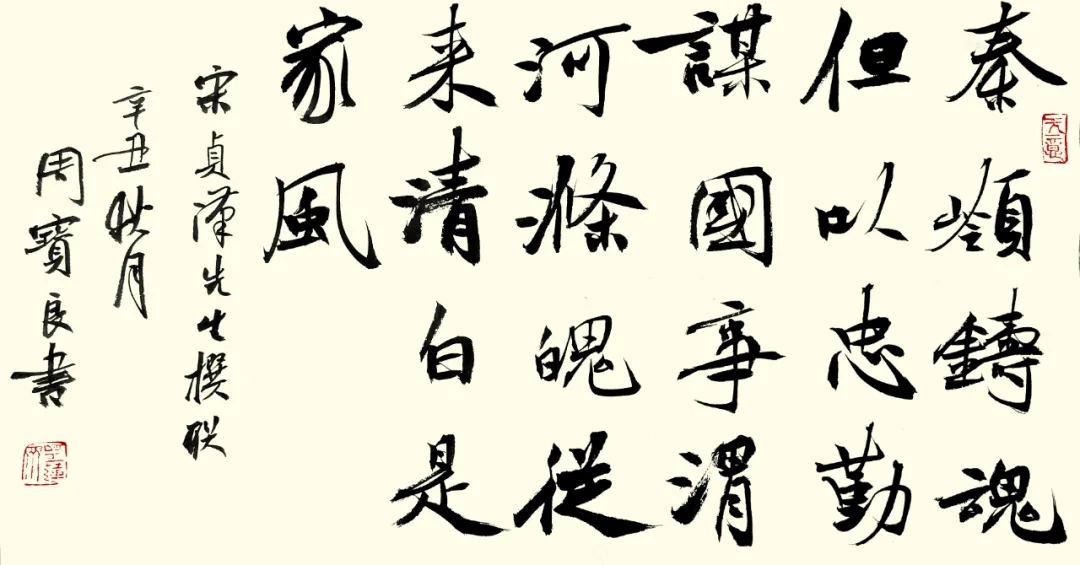 秦嶺鑄魂
但以忠勤
謀國事渭
河滌魄從
来清白是
家風
宋貞漢先生撰联
辛丑秋月
周寶良書